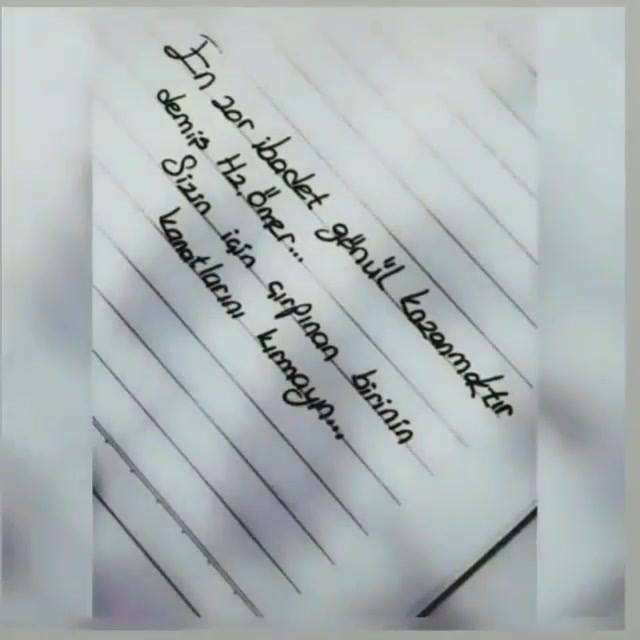 En zor ibadet gönül kazanmaktır
demiş Hz. Ömer...
Sizin için çırpınan birinin
kanatlarını kırmayın...